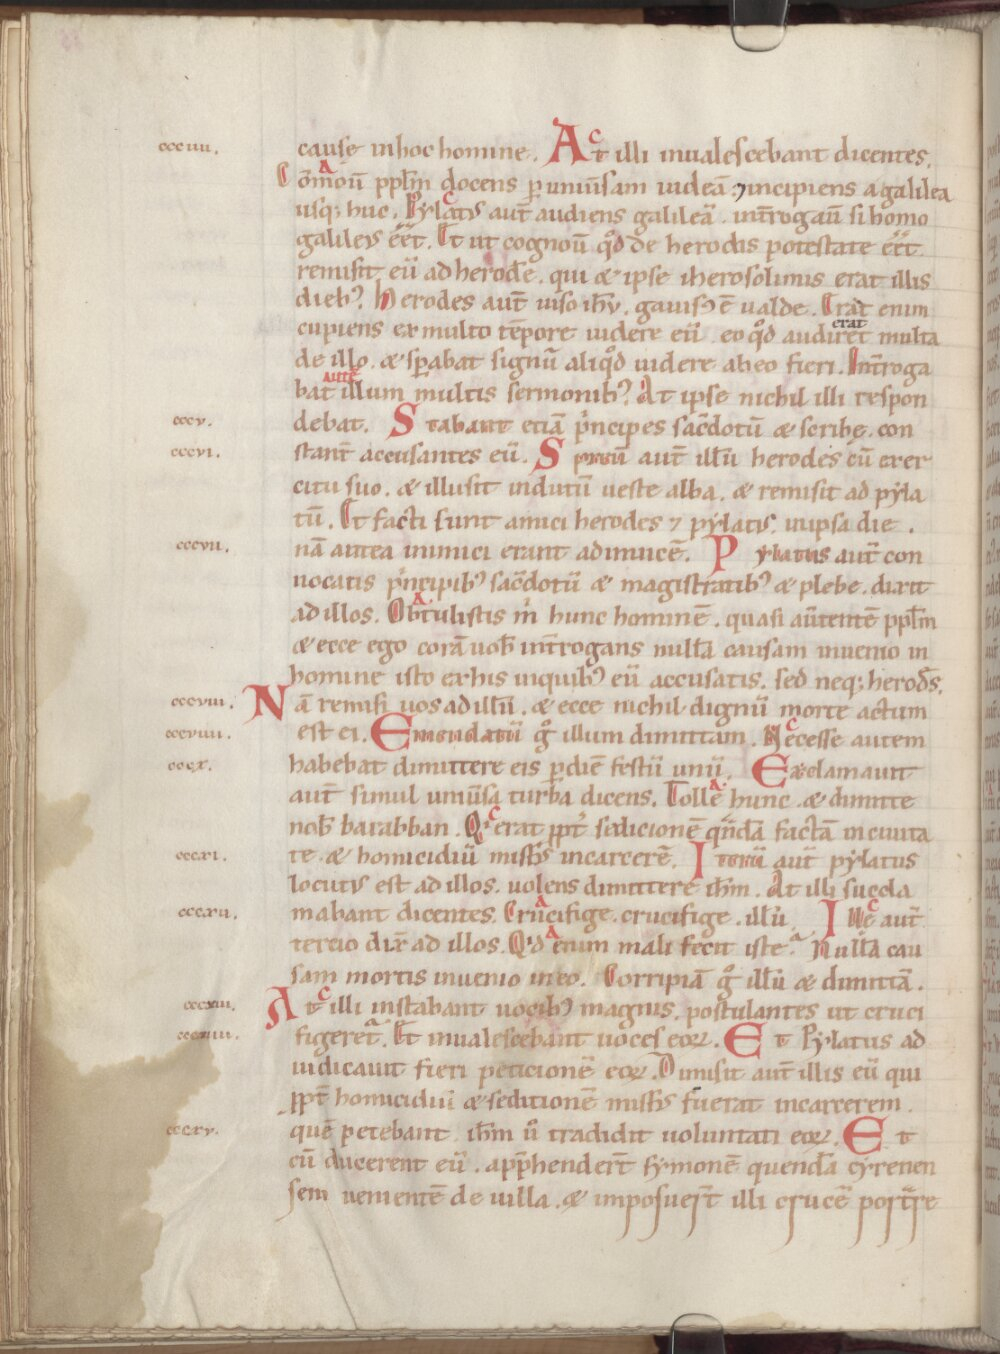 cccıııı. cause inhoc homine. At illi inualescebant dicentes.
Cōmoū ppl̄m docens p uniūsam iudeā ⁊ incipiens a galilea
usq; huc. Pylatꝰ aut̄ audiens galileā. int̄rogauī si homo
galileꝰ eēt. Et ut cognoū qd̄ de herodis potestate eēt
remisit eū ad herodē. qui & ipse iherosolimis erat illis
diebꝰ. Herodes aut̄ uiso ihū. gauisꝰ ē ualde. Erat enim
cupiens ex multo tēpore uidere eū eo qd̄ audiret multa
erat
de illo. & spabat signū aliqd̄ uidere abeo fieri. Int̄roga
bat illum multis sermonibꝰ. At ipse nichil illi respon
autē
cccv. debat. Stabant etiā pncipes sac̄dotū & scribę. con
cccvi. stant̄ accusantes eū. Spreuū aut̄ illū herodes cū exer
citu suo. & illusit indutū ueste alba. & remisit ad pyla
tū. Et facti sunt amici herodes ⁊ pylatꝰ. inipsa die.
cccvii. nā antea inimici erant adinuicē. Pylatus aut̄ con
uocatis pncipibꝰ sac̄dotū & magistratibꝰ & plebe. dixit
ad illos. Obtulistis m̄ hunc hominē. quasi aūtentē ppl̄m
& ecce ego corā uob̄ int̄rogans nullā causam inuenio in
homine isto ex his inquibꝰ eū accusatis. sed neq; herod̄s.
cccviii. Nā remisi uos ad illū. & ecce nichil dignū morte actum
cccviiii. est ei. Emendatū g̊ illum dimittam. Necesse autem
cccx. habebat dimittere eis p diē festū unū. Exclamauit
aut̄ simul uniūsa turba dicens. Tolle hunc. & dimitte
nob̄ barabban. Qi erat ppt̄ sedicionē qndā factā inciuita
cccxi. te. & homicidiū missꝰ incarcerē. Iterū aut̄ pylatus
locutꝰ est ad illos. uolens dimittere ihm̄. At illi succla
cccxii. mabant dicentes. Crucifige. crucifige. illū. Ille aut̄
tercio dix̄ ad illos. Qd enim mali fecit iste? Nullā cau
sam mortis inuenio ineo. Corripiā g̊ illū & dimittā.
cccxiii. At illi instabant uocibꝰ magnis. postulantes ut cruci
cccxiiii. figeret̄. Et inualescebant uoces eoꝝ. Et Pylatus ad
iudicauit fieri peticionē eoꝝ. Dimisit aut̄ illis eū qui
ppt̄ homicidiū & seditionē missꝰ fuerat incarcerem.
cccxv. quē petebant. ihm̄ ū tradidit uoluntati eoꝝ. Et
cū ducerent eū. app̄henderūt symonē quendā cyrenen
sem uenientē de uilla. & imposuert̄ illi crucē portare